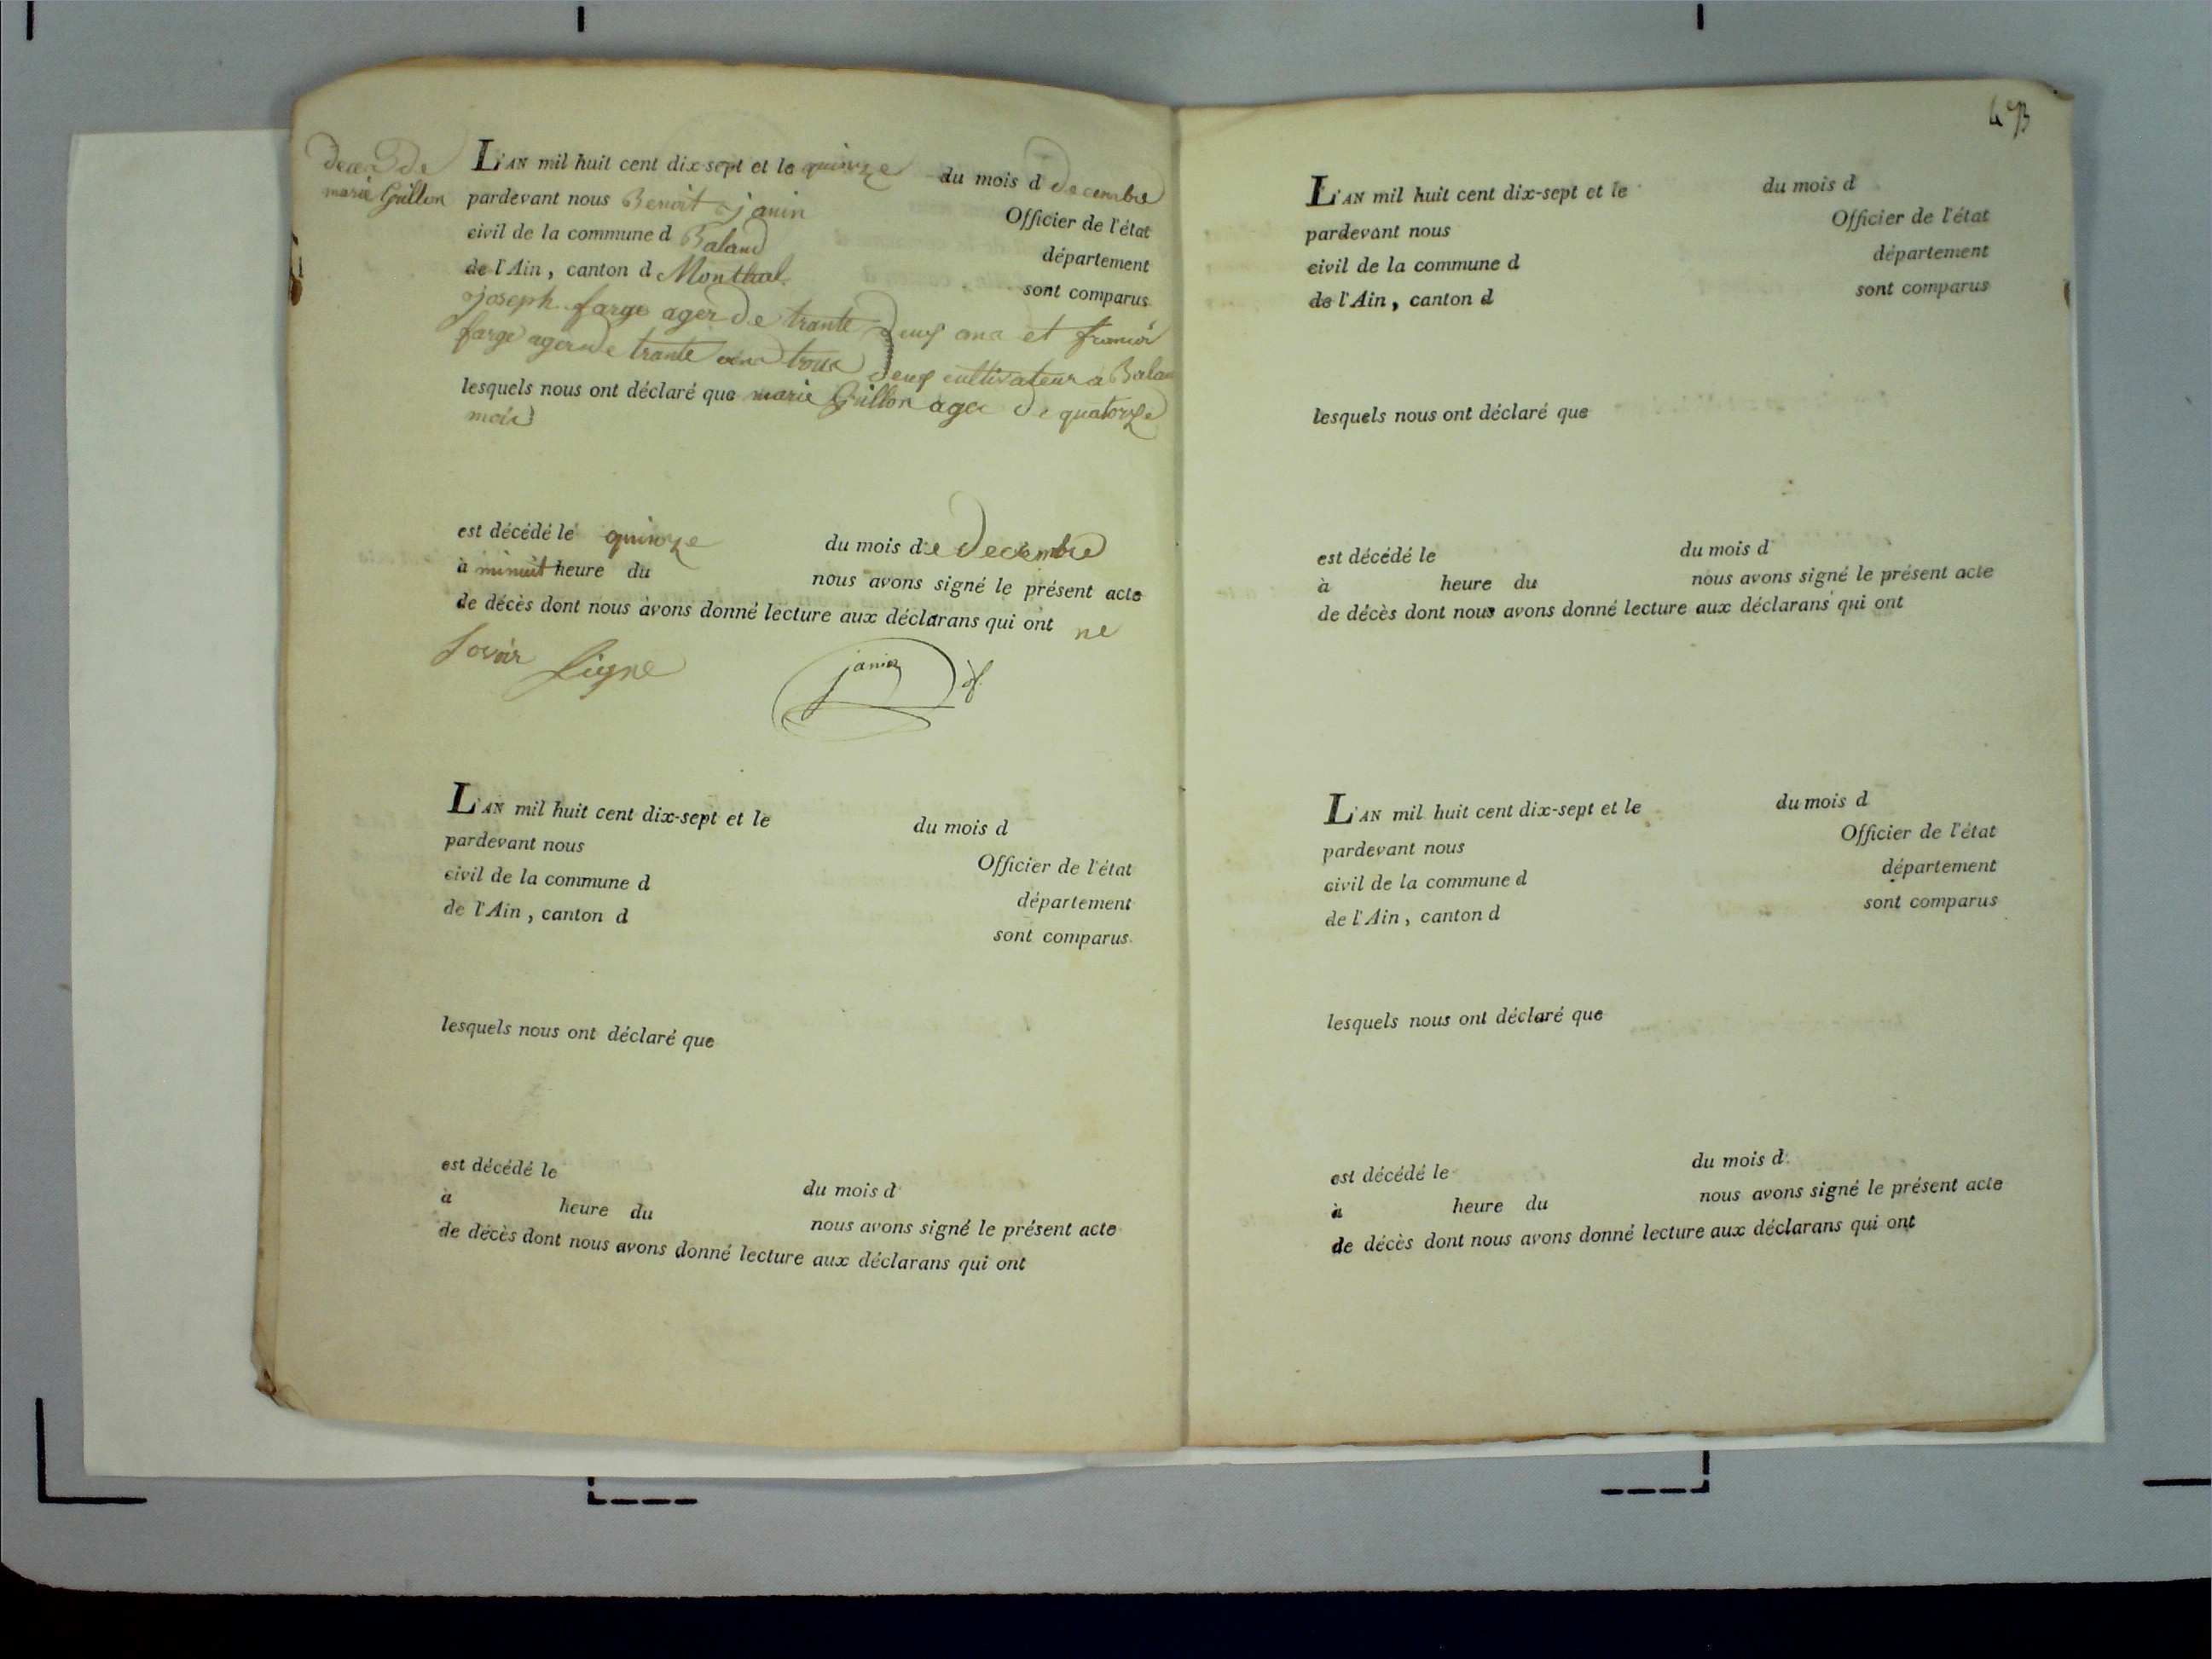 deces de
marie Grillon
L'AN mil huit cent dix-sept et le quinze du mois d decembre
pardevant nous Benoit janin Officier de l'état
civil de la commune d Baland département
de l'Ain, canton d Montluel sont comparus
joseph farge ager de trante deuf ans et
farge ager de trante deuf cultivateur a Balan
lesquels nous ont déclaré que marie Grillon agee de quatorze
mois
est décédé le quinze du mois de decembre
à minuit heure du nous avons signé le présent acte
de décès dont nous avons donné lecture aux déclarans qui ont ne
savoir signe
janin
L'AN mil huit cent dix-sept et le du mois d
pardevant nous Officier de l'état
civil de la commune d département
de l'Ain, canton d sont comparus
lesquels nous ont déclaré que
est décédé le du mois d
à heure du nous avons signé le présent acte
de décès dont nous avons donné lecture aux déclarans qui ont
L'AN mil huit cent dix-sept et le du mois d
pardevant nous Officier de l'état
civil de la commune d département
de l'Ain, canton d sont comparus
lesquels nous ont déclaré que
est décédé le du mois d
à heure du nous avons signé le présent acte
de décès dont nous avons donné lecture aux déclarans qui ont
L'AN mil huit cent dix-sept et le du mois d
pardevant nous Officier de l'état
civil de la commune d département
de l'Ain, canton d sont comparus
lesquels nous ont déclaré que
est décédé le du mois d
à heure du nous avons signé le présent acte
de décès dont nous avons donné lecture aux déclarans qui ont